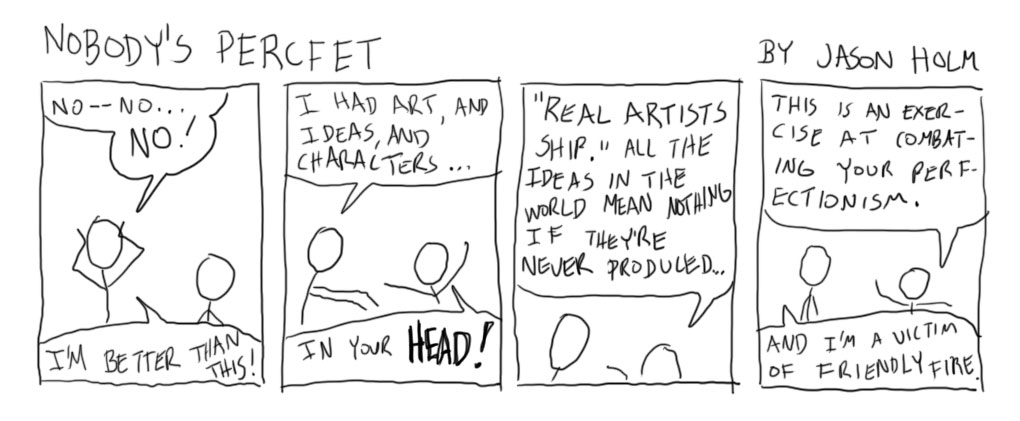 NOBODY'S PERCFET
BY JASON HOLM
NO--NO...
NO!
I'M BETTER THAN
THIS!
I HAD ART, AND
IDEAS, AND
CHARACTERS...
IN YOUR HEAD!
"REAL ARTISTS
SHIP." ALL THE
IDEAS IN THE
WORLD MEAN NOTHING
IF THEY'RE
NEVER PRODUCED...
THIS IS AN EXER-
CISE AT COMBAT-
ING YOUR PERF-
ECTIONISM.
AND I'M A VICTIM
OF FRIENDLY FIRE.